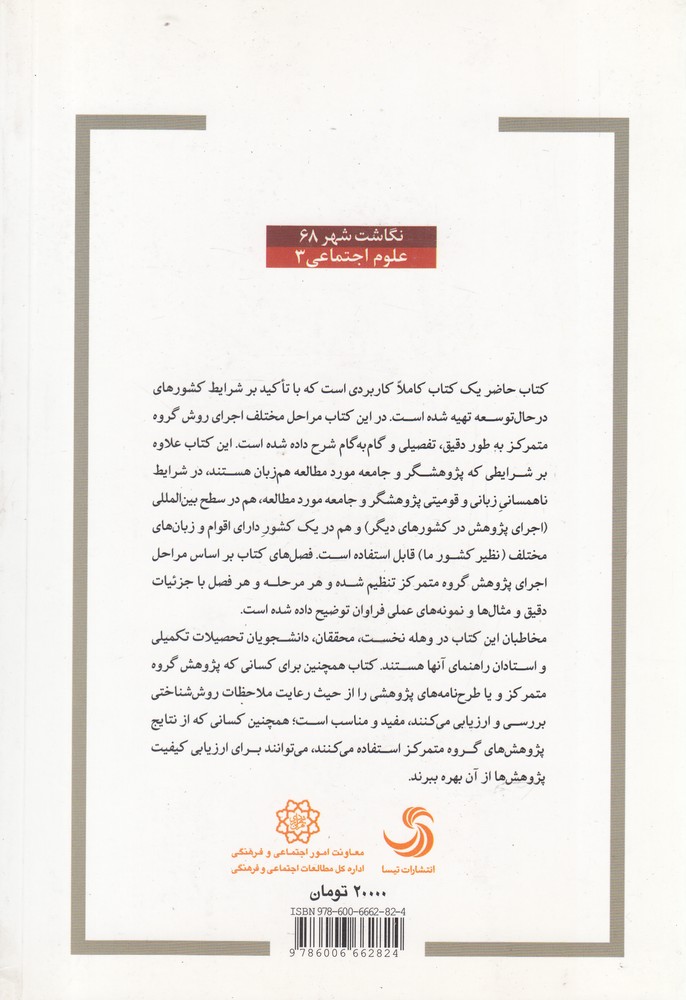 نگاشت شهر ۶۸
علوم اجتماعی ۳
کتاب حاضر یک کتاب کاملاً کاربردی است که با تأکید بر شرایط کشورهای
درحال‌توسعه تهیه شده است. در این کتاب مراحل مختلف اجرای روش گروه
متمرکز به طور دقیق، تفصیلی و گام‌به‌گام شرح داده شده است. این کتاب علاوه
بر شرایطی که پژوهشگر و جامعه مورد مطالعه هم‌زبان هستند، در شرایط
ناهمسانیِ زبانی و قومیتی پژوهشگر و جامعه مورد مطالعه، هم در سطح بین‌المللی
(اجرای پژوهش در کشورهای دیگر) و هم در یک کشورِ دارای اقوام و زبان‌های
مختلف (نظیر کشور ما) قابل استفاده است. فصل‌های کتاب بر اساس مراحل
اجرای پژوهش گروه متمرکز تنظیم شده و هر مرحله و هر فصل با جزئیات
دقیق و مثال‌ها و نمونه‌های عملی فراوان توضیح داده شده است.
مخاطبان این کتاب در وهله نخست، محققان، دانشجویان تحصیلات تکمیلی
و استادان راهنمای آنها هستند. کتاب همچنین برای کسانی که پژوهش گروه
متمرکز و یا طرح‌نامه‌های پژوهشی را از حیث رعایت ملاحظات روش‌شناختی
بررسی و ارزیابی می‌کنند، مفید و مناسب است؛ همچنین کسانی که از نتایج
پژوهش‌های گروه متمرکز استفاده می‌کنند، می‌توانند برای ارزیابی کیفیت
پژوهش‌ها از آن بهره ببرند.
انتشارات تیسا
معاونت امور اجتماعی و فرهنگی
اداره کل مطالعات اجتماعی و فرهنگی
۲۰۰۰۰ تومان
ISBN 978-600-6662-82-4
9 786006 662824